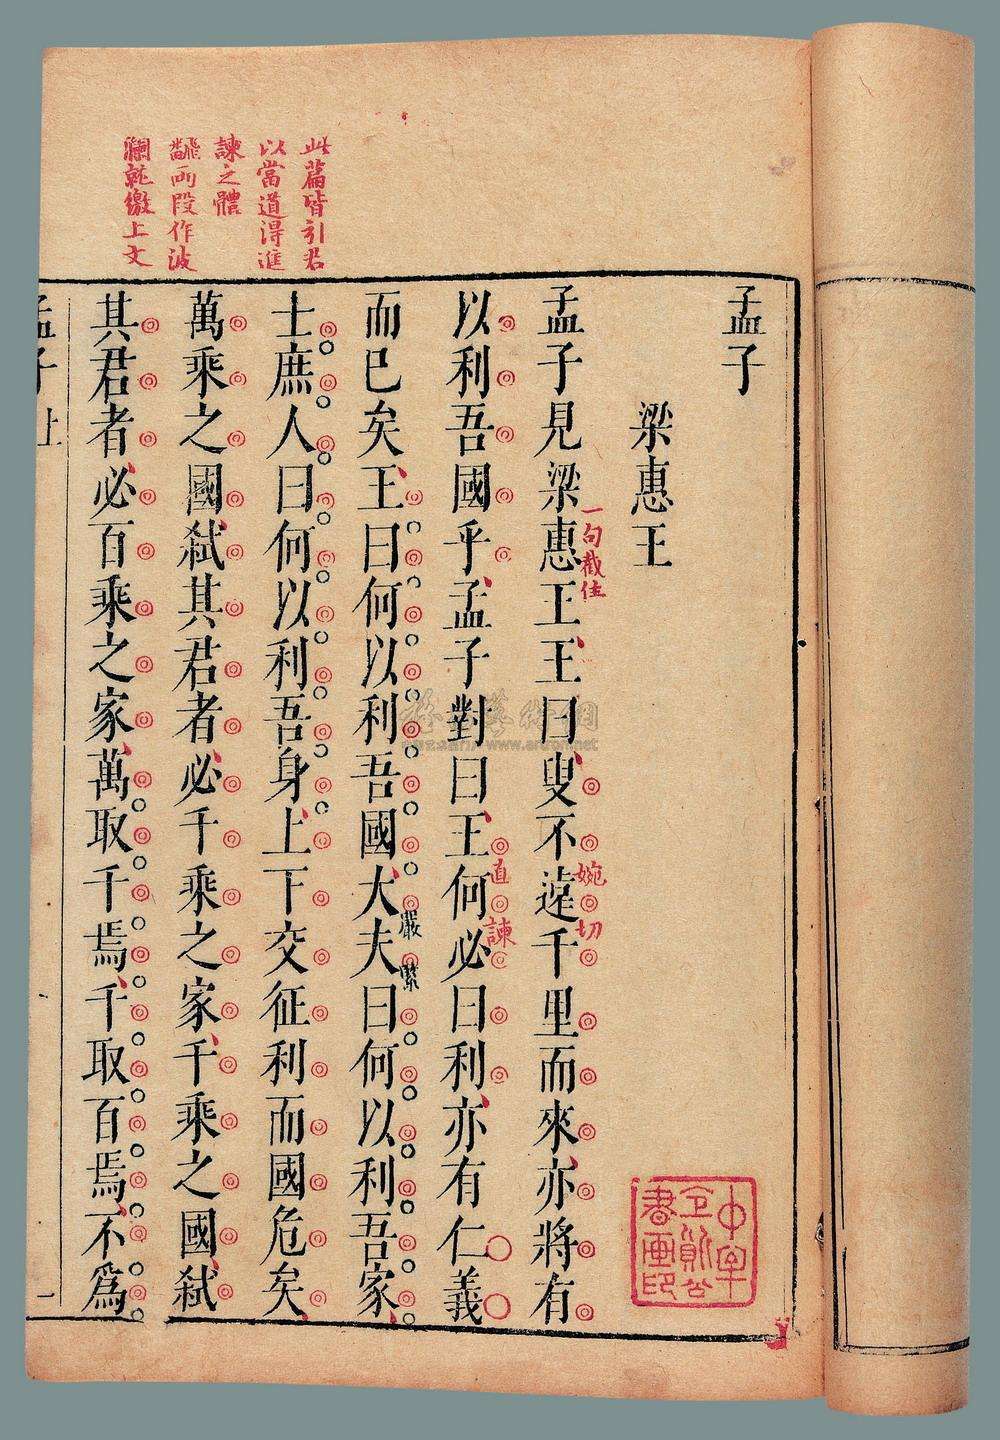 此篇皆引君
以當道得進
諫之體
飜兩段作波
瀾就繳上文
孟子
梁惠王
孟子見梁惠王王曰叟不遠千里而來亦將有
一句截住
婉切
以利吾國乎孟子對曰王何必曰利亦有仁義
直諫
而已矣王曰何以利吾國大夫曰何以利吾家
嚴緊
士庶人曰何以利吾身上下交征利而國危矣
萬乘之國弒其君者必千乘之家千乘之國弒
其君者必百乘之家萬取千焉千取百焉不為
孟子上
一
書畫印
www.artron.net